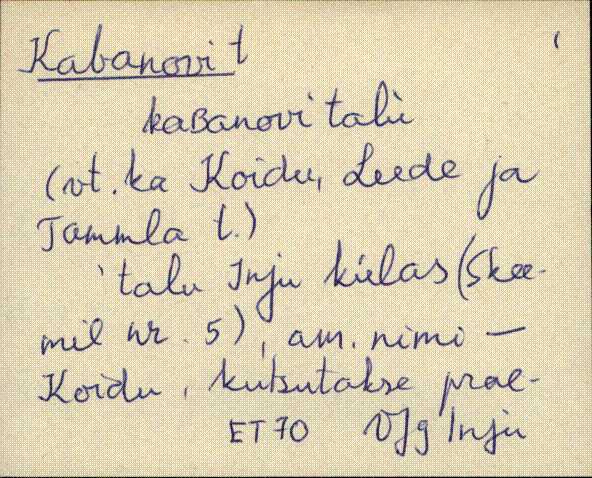 Kabanovi t
kaʙanovi 'talu̇
(vt. ka Koidu, Leede ja
Tammla t.)
'talu Inju külas (skee-
mil nr. 5), am. nimi —
Koidu, kutsutakse prae-
ET 70 VJg Inju